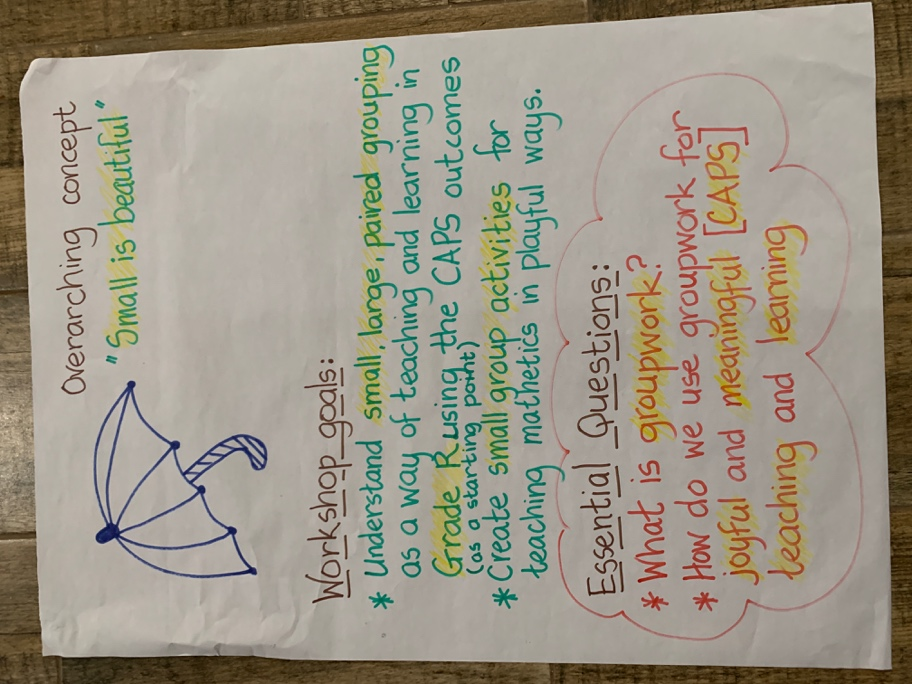 Overarching concept
"Small is beautiful"
Workshop goals:
* Understand small, large, paired grouping
as a way of teaching and learning in
Grade R using the CAPS outcomes
(as a starting point)
* Create small group activities for
teaching mathetics in playful ways.
Essential Questions:
* What is groupwork?
* How do we use groupwork for
joyful and meaningful [CAPS]
teaching and learning